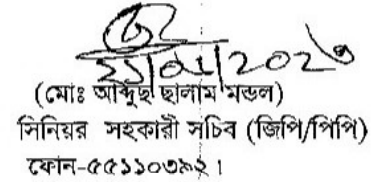 (মোঃ আব্দুছ ছালাম মন্ডল)
সিনিয়র সহকারী সচিব (জিপি/পিপি)
ফোন-৫৫১১০৩৯২।